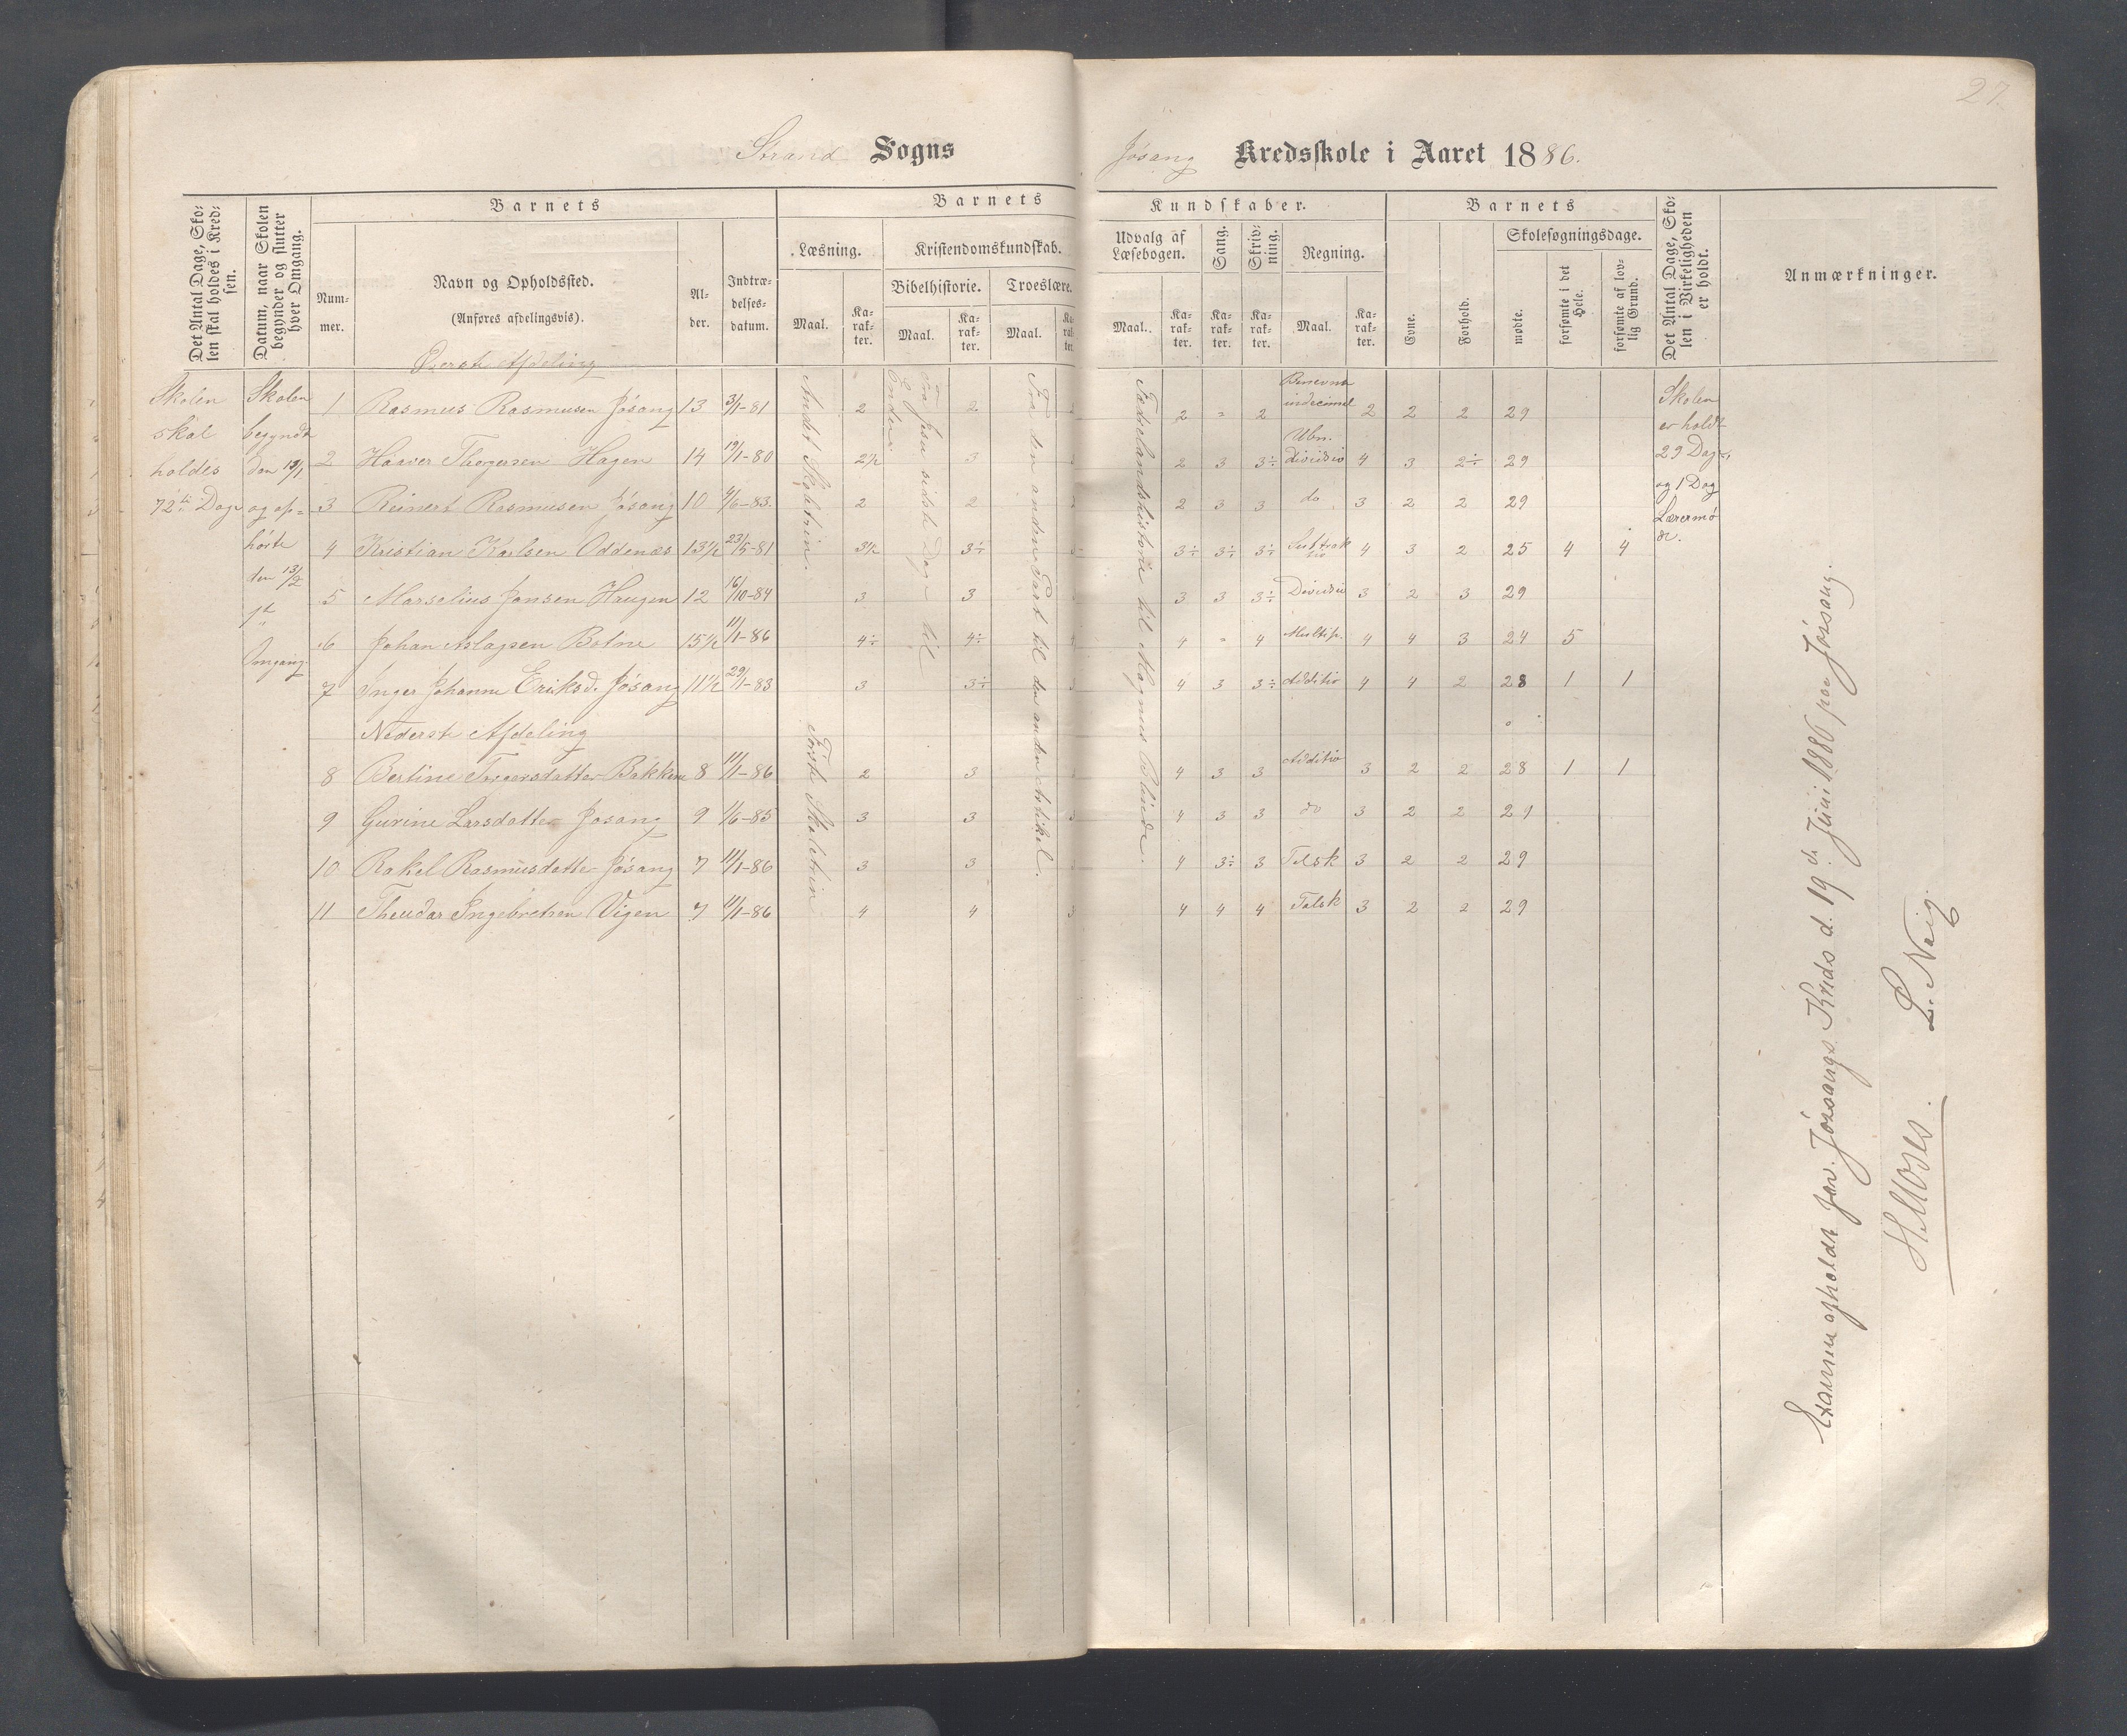 27
Strand Sogns Jósang Kredsskole i Aaret 1886.
Det Antal Dage, Skolen skal holdes i Kredsen.
Datum, naar Skolen begynder og slutter hver Omgang.
Barnets
Nummer.
Navn og Opholdssted.
(Anføres afdelingsvis).
Alder.
Indtrædelsesdatum.
Barnets Kundskaber.
Læsning.
Maal.
Karakter.
Kristendomskundskab.
Bibelhistorie.
Maal.
Karakter.
Troeslære.
Maal.
Udvalg af Læsebogen.
Maal.
Karakter.
Sang.
Karakter.
Skrivning.
Karakter.
Regning.
Maal.
Karakter.
Barnets
Evne.
Forhold.
Skolesøgningsdage.
mødte.
forsømte i det Hele.
forsømte af lovlig Grund.
Det Antal Dage, Skolen i Virkeligheden er holdt.
Anmærkninger.
Skolen
skal
holdes
72 Dage
Skolen
begyndte
den
og op=
hörte
den 13/2
1ste
Omgang.
Øverste Afdeling
1 Rasmus Rasmusen Jósang 13 3/1-81 2 2 2 " 2 2 2 2 29
2 Håaver Thogersen Hagen 14 19/1-80 2½ 3 2 3 3÷ Ubn. Divisio 4 3 2÷ 29
3 Reinert Rasmusen Jósang 10 4/6-83. 2 2 2 3 3 do 3 2 2 29
4 Kristian Karlsen Oddenæs 13½ 23/5-81 3½ 3÷ 3÷ 3÷ 3÷ Subtraktio 4 3 2 25 4 4
5 Marselius Jansen Haugen 12 16/10-84 3 3 3 3 3÷ Divisio 3 2 3 29
6 Johan Aslagsen Botne 15½ 11/1-86 4÷ 4÷ 4 " 4 Multip. 4 4 3 24 5
7 Inger Johanne Eriksd. Jósang 11½ 29/1-83 3 3÷ 4 3 3÷ Additio 4 4 2 28 1 1
Nederste Afdeling
8 Bertine Torgersdatter Bakken 8 11/1-86 2 3 4 3 3 Additio 3 2 2 28 1 1
9 Gurine Larsdatter Josang 9 1/6-85 3 3 4 3 3 do 3 2 2 29
10 Rakel Rasmusdatter Jósang 7 11/1-86 3 3 4 3÷ 3 Telsk 3 2 2 29
11 Theudar Ingebretsen Vigen 7 11/1-86 4 4 4 4 4 Talsk 3 2 2 29
Andet Skoletrin.
Første Skoletrin
Fra Jesu sidste Dage til
Enden
Fra den anden Part til den anden Artikel.
Fædrelandshistorie til Magnus Blinde.
Skolen
er holdt
29 Dage,
og 1 Dag
Lærermö
de.
Examen afholdt for Jössangs Kreds d. 19de Juni 1886 paa Jössang.